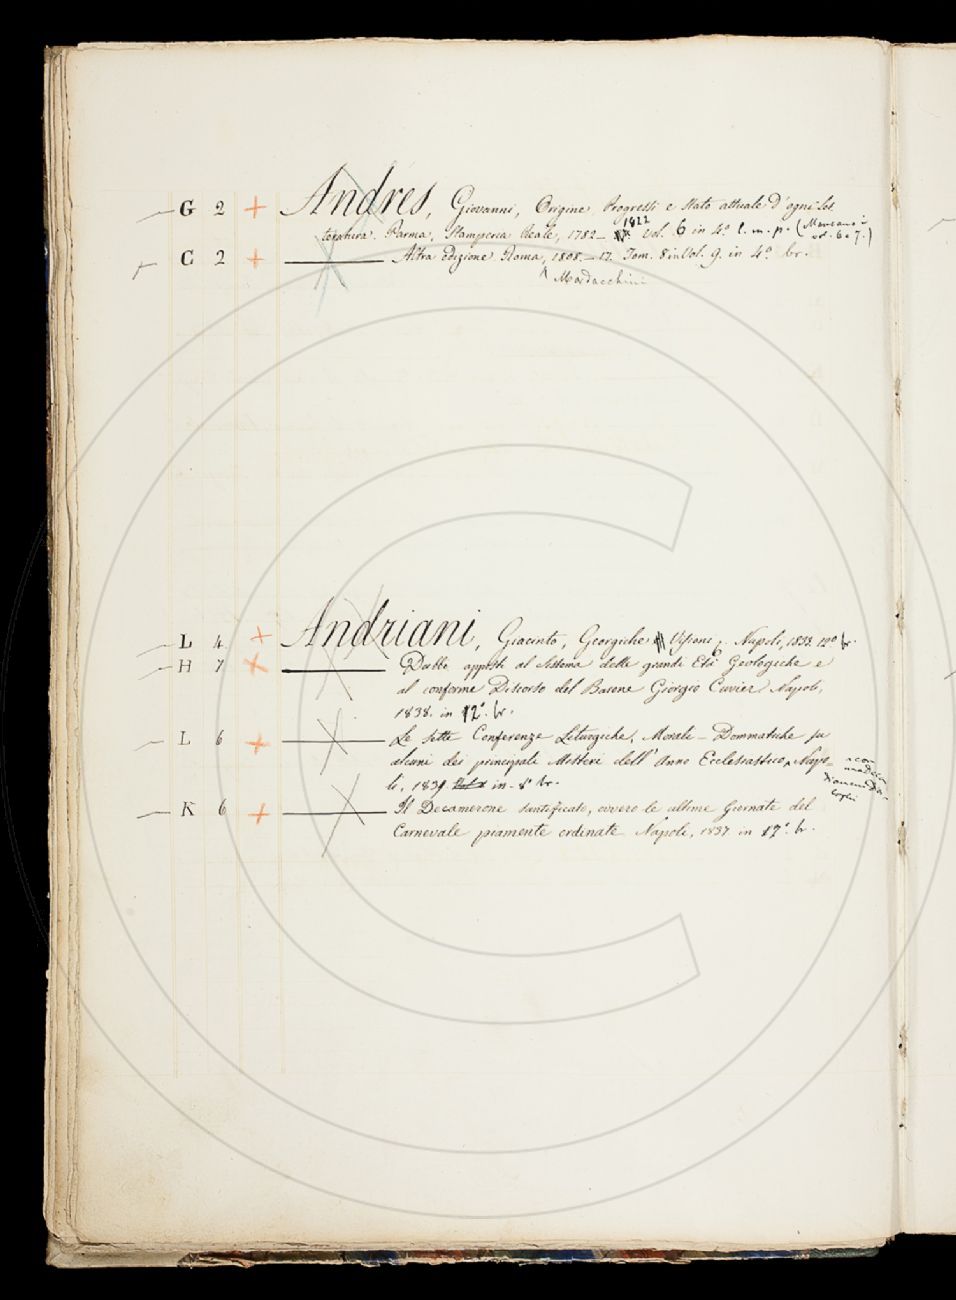 G 2 + Andres, Giovanni, Origine Progressi e Stato attuale d'ogni Let
teratura. Parma, Stamperia Reale, 1782– 1822 vol. 6 in 4.º l. m. p. (Mancano i
vol. 6 e 7.)
C 2 + Altra edizione Roma, 1808.–17. Tom. 8 in Vol. 9. in 4.º br.
Mordacchini
L 4 + Andriani, Giacinto, Georgiche Visioni. Napoli, 1833. 12º br.
H 7 + Dubbi apposti al Sistema delle grandi Età Geologiche e
al conforme Discorso del Barone Giorgio Cuvier Napoli,
1838. in 12º. br.
L 6 + Le sette Conferenze Liturgiche, Morali – Dommatiche su
alcuni dei principali Misteri dell'Anno Ecclesiastico, Napo-
li, 1839 in 8º br.
K 6 + Il Decamerone santificato, ovvero le ultime Giornate del
Carnevale piamente ordinate Napoli, 1837 in 12º. br.